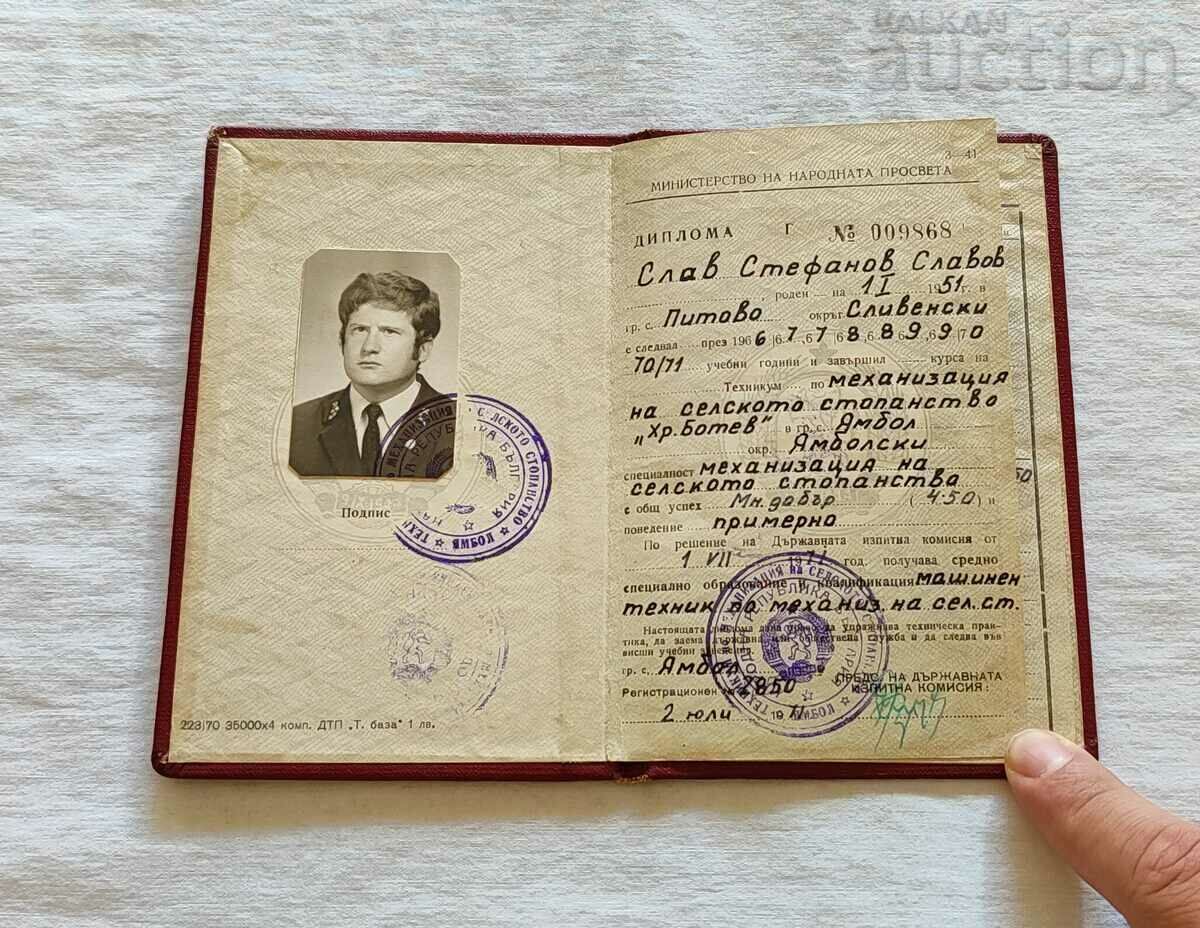 BALKAN
auction
Подпис
223|70 35000х4 комп. ДТП „Т. база" 1 лв.
3—41
МИНИСТЕРСТВО НА НАРОДНАТА ПРОСВЕТА
ДИПЛОМА Г № 009868
Слав Стефанов Славов
роден на 1 I 1951 г. в
гр. с. Питово окръг Сливенски
е следвал през 1966|67, 67|68, 68|69, 69|70
70/71 учебни години и завършил курса на
Техникум по механизация
на селското стопанство
„Хр. Ботев" в гр. с. Ямбол
окр. Ямболски
специалност механизация на
селското стопанства
с общ успех Мн. добър (4·50) и
поведение примерно
По решение на Държавната изпитна комисия от
1 VII 1971 год. получава средно
специално образование и квалификация машинен
техник по механиз. на сел. ст.
Настоящата диплома дава право да упражнява техническа прак-
тика, да заема държавна или обществена служба и да следва във
висши учебни заведения.
гр. с. Ямбол
Регистрационен № 2850
2 юли 1971
ПРЕДС. НА ДЪРЖАВНАТА
ИЗПИТНА КОМИСИЯ: